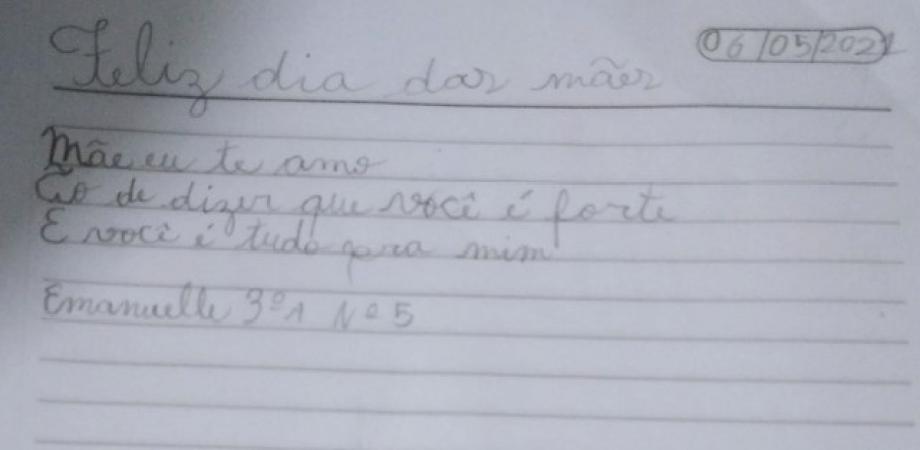 Feliz dia das mães
06/05/2021
Mãe eu te amo
Go de dizer que você é forte
E você é tudo para mim
Emanuelle 3º1 Nº 5